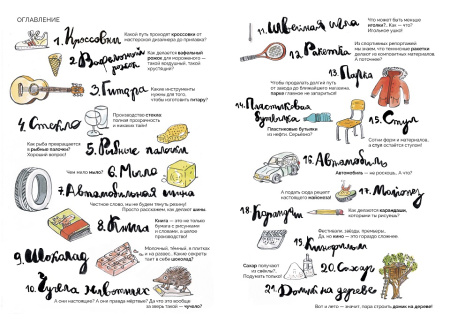 ОГЛАВЛЕНИЕ
1. Кроссовки
Какой путь проходят кроссовки от
мастерской дизайнера до прилавка?
2. Вафельный
рожок
Как делаются вафельный
рожок для мороженого —
такой воздушный, такой
хрустящий?
3. Гитара
Какие инструменты
нужны для того,
чтобы изготовить гитару?
4. Стекло
Производство стекла:
полная прозрачность
и никаких тайн!
Как рыба превращается
в рыбные палочки?
Хороший вопрос!
5. Рыбные палочки
6. Мыло
7. Автомобильная шина
Честное слово, мы не будем тянуть резину!
Просто расскажем, как делают шины.
8. Книга
Книга — это не только
бумага с рисунками
и словами, а целое
производство!
9. Шоколад
Молочный, тёмный, в плитках
и на развес. Какие секреты
таит в себе шоколад?
10. Чучела животных
А они настоящие? А они правда мёртвые? Да что это вообще
за зверь такой — чучело?
11. Швейная игла
Что может быть меньше
иголки?.. Как — что?
Игольное ушко!
12. Ракетка
Из спортивных репортажей
мы знаем, что теннисные ракетки
делают из композитных материалов.
А потоми?
13. Парка
Чтобы проделать долгий путь
от завода до ближайшего магазина,
парке главное не запариться!
14. Пластиковая
бутылка
Пластиковые бутылки
из нефти. Серьёзно?
15. Стул
Сотни форм и материалов,
а стул остаётся стулом!
16. Автомобиль
Автомобиль — не роскошь. А что?
17. Майонез
А подать сюда рецепт
настоящего майонеза!
18. Карандаш
Как делаются карандаши,
которыми ты рисуешь?
19. Кинофильм
Фестивали, звёзды, премьеры.
Да, но кино — это гораздо сложнее.
20. Сахар
Сахар получают
из свёклы?..
Подумать только!
21. Домик на дереве
Вот и лето — значит, пара строить домик на дереве!